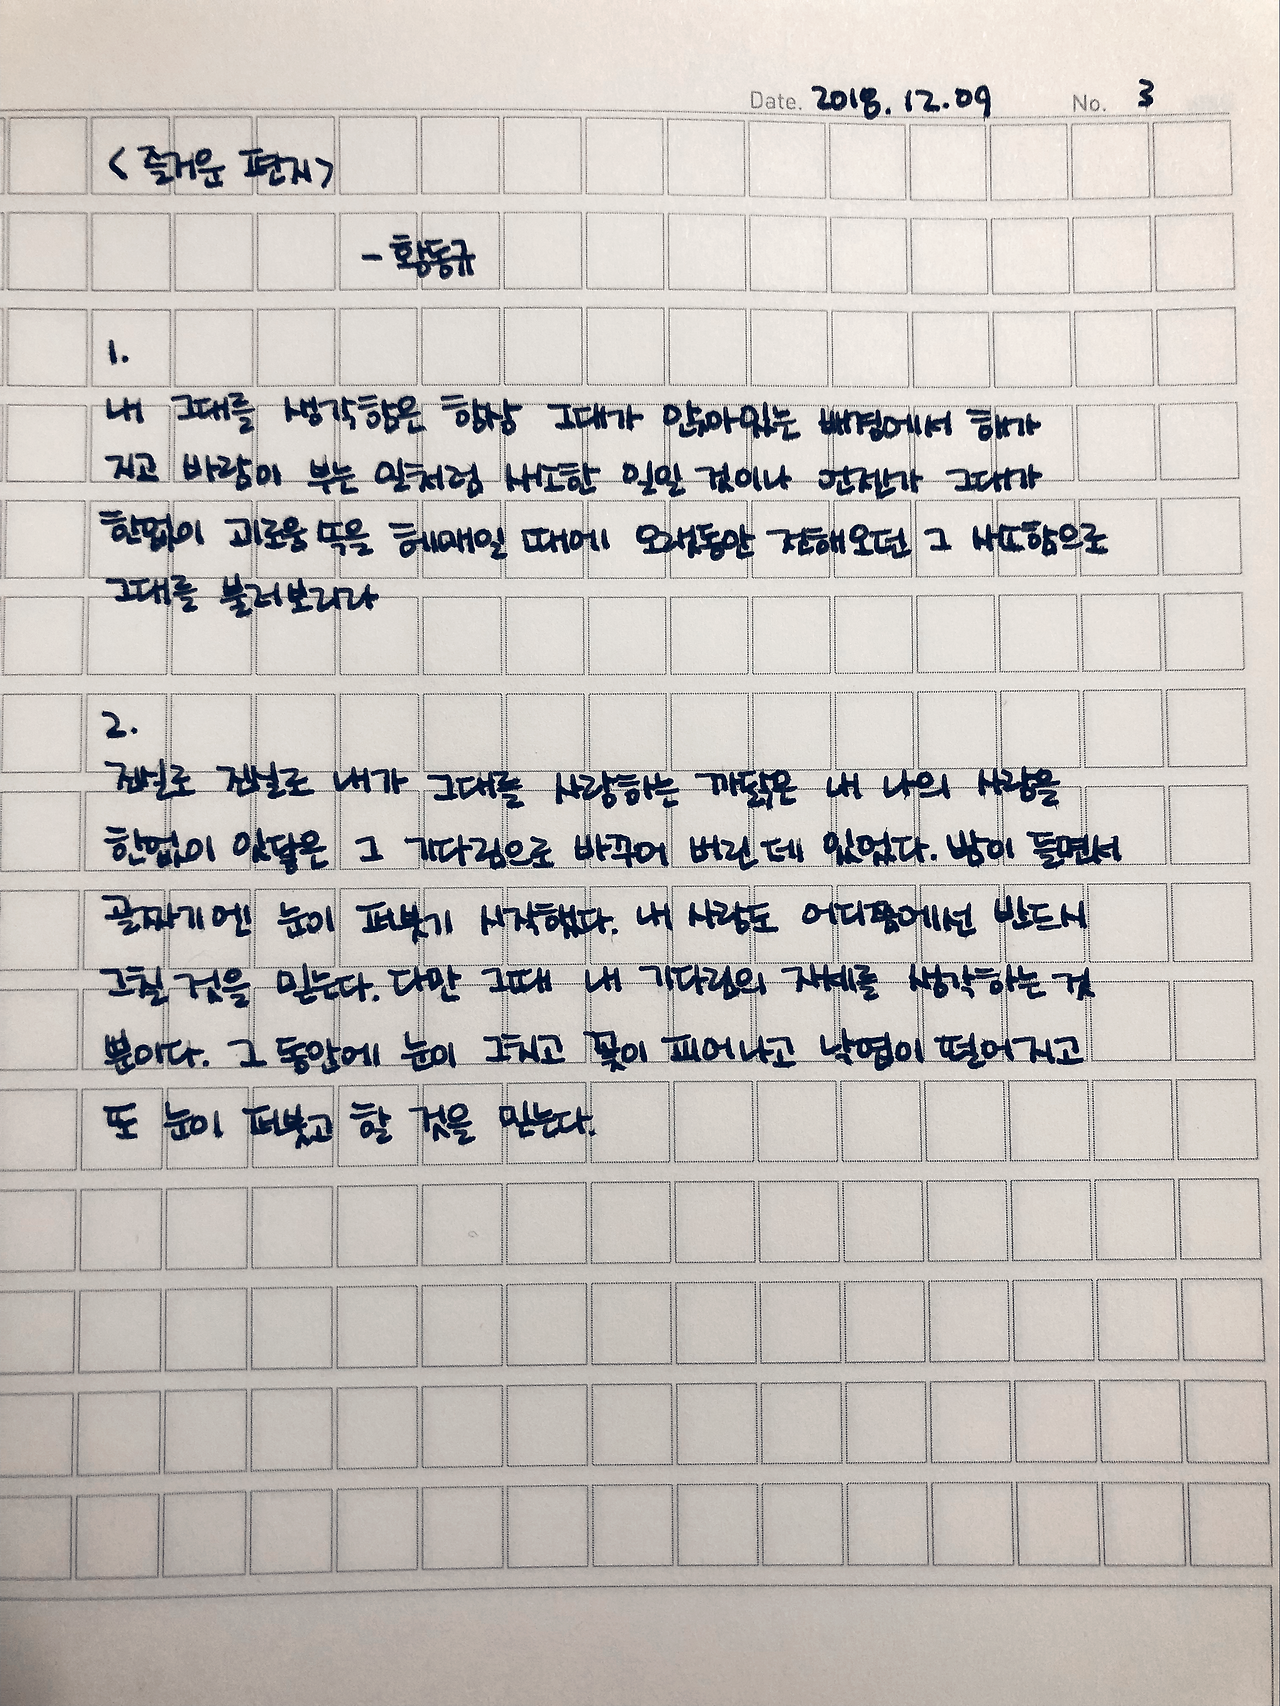 Date. 2018. 12. 09 No. 3
<즐거운 편지>
- 황동규
1.
내 그대를 생각함은 항상 그대가 앉아있는 배경에서 해가
지고 바람이 부는 일처럼 사소한 일일 것이나 언젠가 그대가
한없이 괴로움 속을 헤매일 때에 오랫동안 전해오던 그 사소함으로
그대를 불러보리라
2.
진실로 진실로 내가 그대를 사랑하는 까닭은 내 나의 사랑을
한없이 잇닿은 그 기다림으로 바꾸어 버린 데 있었다. 밤이 들면서
골짜기엔 눈이 퍼붓기 시작했다. 내 사랑도 어디쯤에선 반드시
그칠 것을 믿는다. 다만 그때 내 기다림의 자세를 생각하는 것
뿐이다. 그 동안에 눈이 그치고 꽃이 피어나고 낙엽이 떨어지고
또 눈이 퍼붓고 할 것을 믿는다.